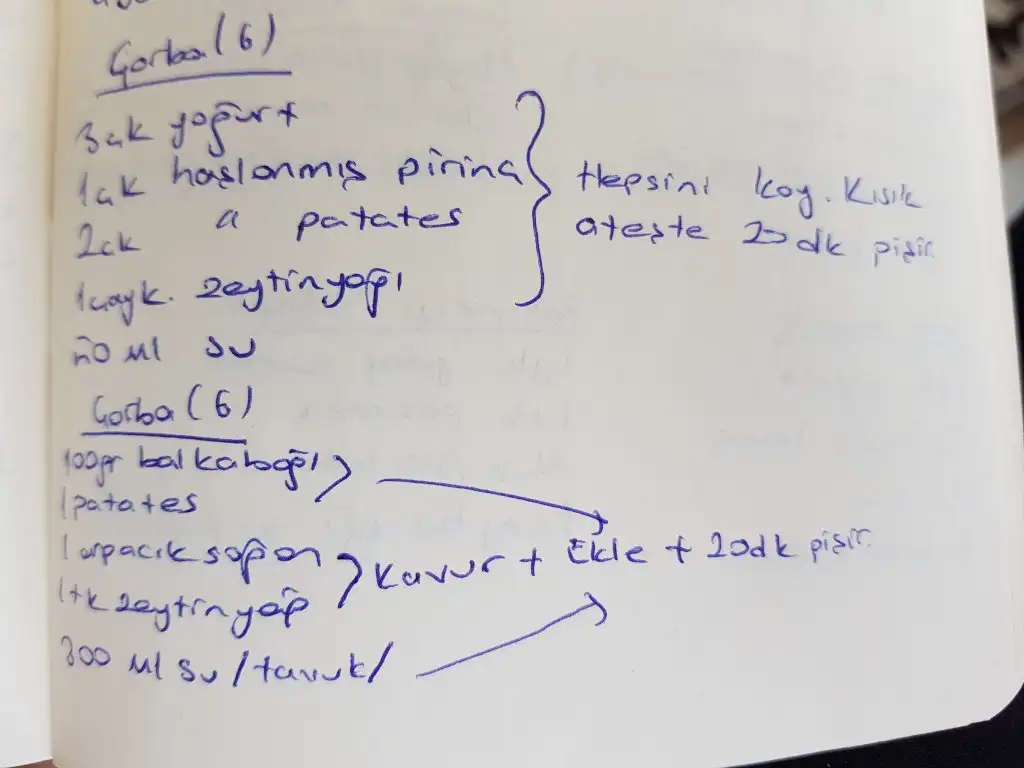 Çorba (6)
3 ak yoğurt
1 ak haşlanmış pirinç
2 ck " patates
1 çay k. zeytinyağı
Hepsini koy. Kısık
ateşte 20 dk pişir.
ml su
Çorba (6)
100gr balkabağı
1 patates
1 arpacık soğan
1 tk zeytinyağ
kavur + Ekle + 20dk pişir.
300 ml su /tavuk/